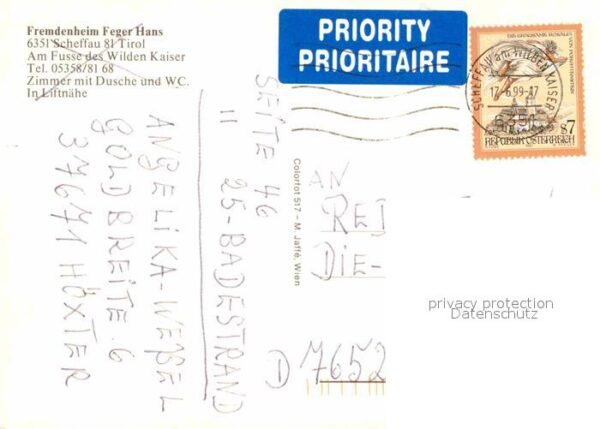 Fremdenheim Feger Hans
6351 Scheffau 81 Tirol
Am Fusse des Wilden Kaiser
Tel. 05358/81 68
Zimmer mit Dusche und WC.
In Liftnähe
PRIORITY
PRIORITAIRE
SCHEFFAU am WILDEN KAISER
17.6.99-17
6351
S7
REPUBLIK ÖSTERREICH
SEITE 46
11
25-BADESTRAND
ANGELIKA-WEßEL
GOLDBREITE.6
37671 HÖXTER
Colorfot 517 - M. Jaffé, Wien
AN
REI
DIE-
D 7652
privacy protection
Datenschutz